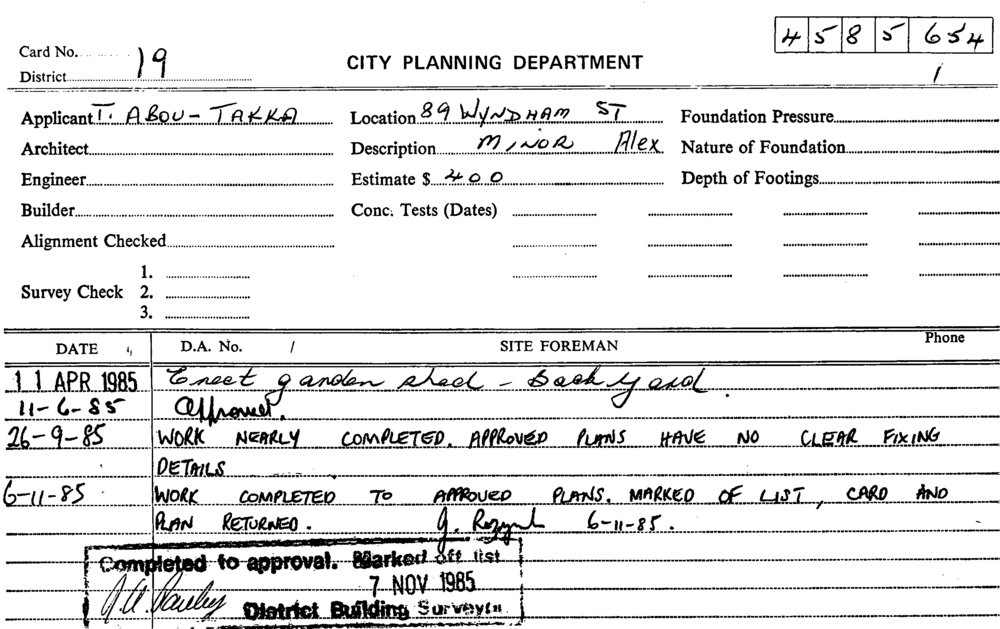 45 85 654
Card No. 19
District
CITY PLANNING DEPARTMENT
1
Applicant T. ABOU-TAKKA Location 89 WYNDHAM ST Foundation Pressure
Architect Description MINOR Alex Nature of Foundation
Engineer Estimate $ 400 Depth of Footings
Builder Conc. Tests (Dates)
Alignment Checked
1.
Survey Check 2.
3.
DATE D.A. No. / SITE FOREMAN Phone
11 APR 1985 Erect garden shed - Back yard.
11-6-85 Approved.
26-9-85 WORK NEARLY COMPLETED. APPROVED PLANS HAVE NO CLEAR FIXING
DETAILS
6-11-85 WORK COMPLETED TO APPROVED PLANS. MARKED OF LIST, CARD AND
PLAN RETURNED. 6-11-85.
Completed to approval. Marked off list
7 NOV 1985
District Building Surveyor